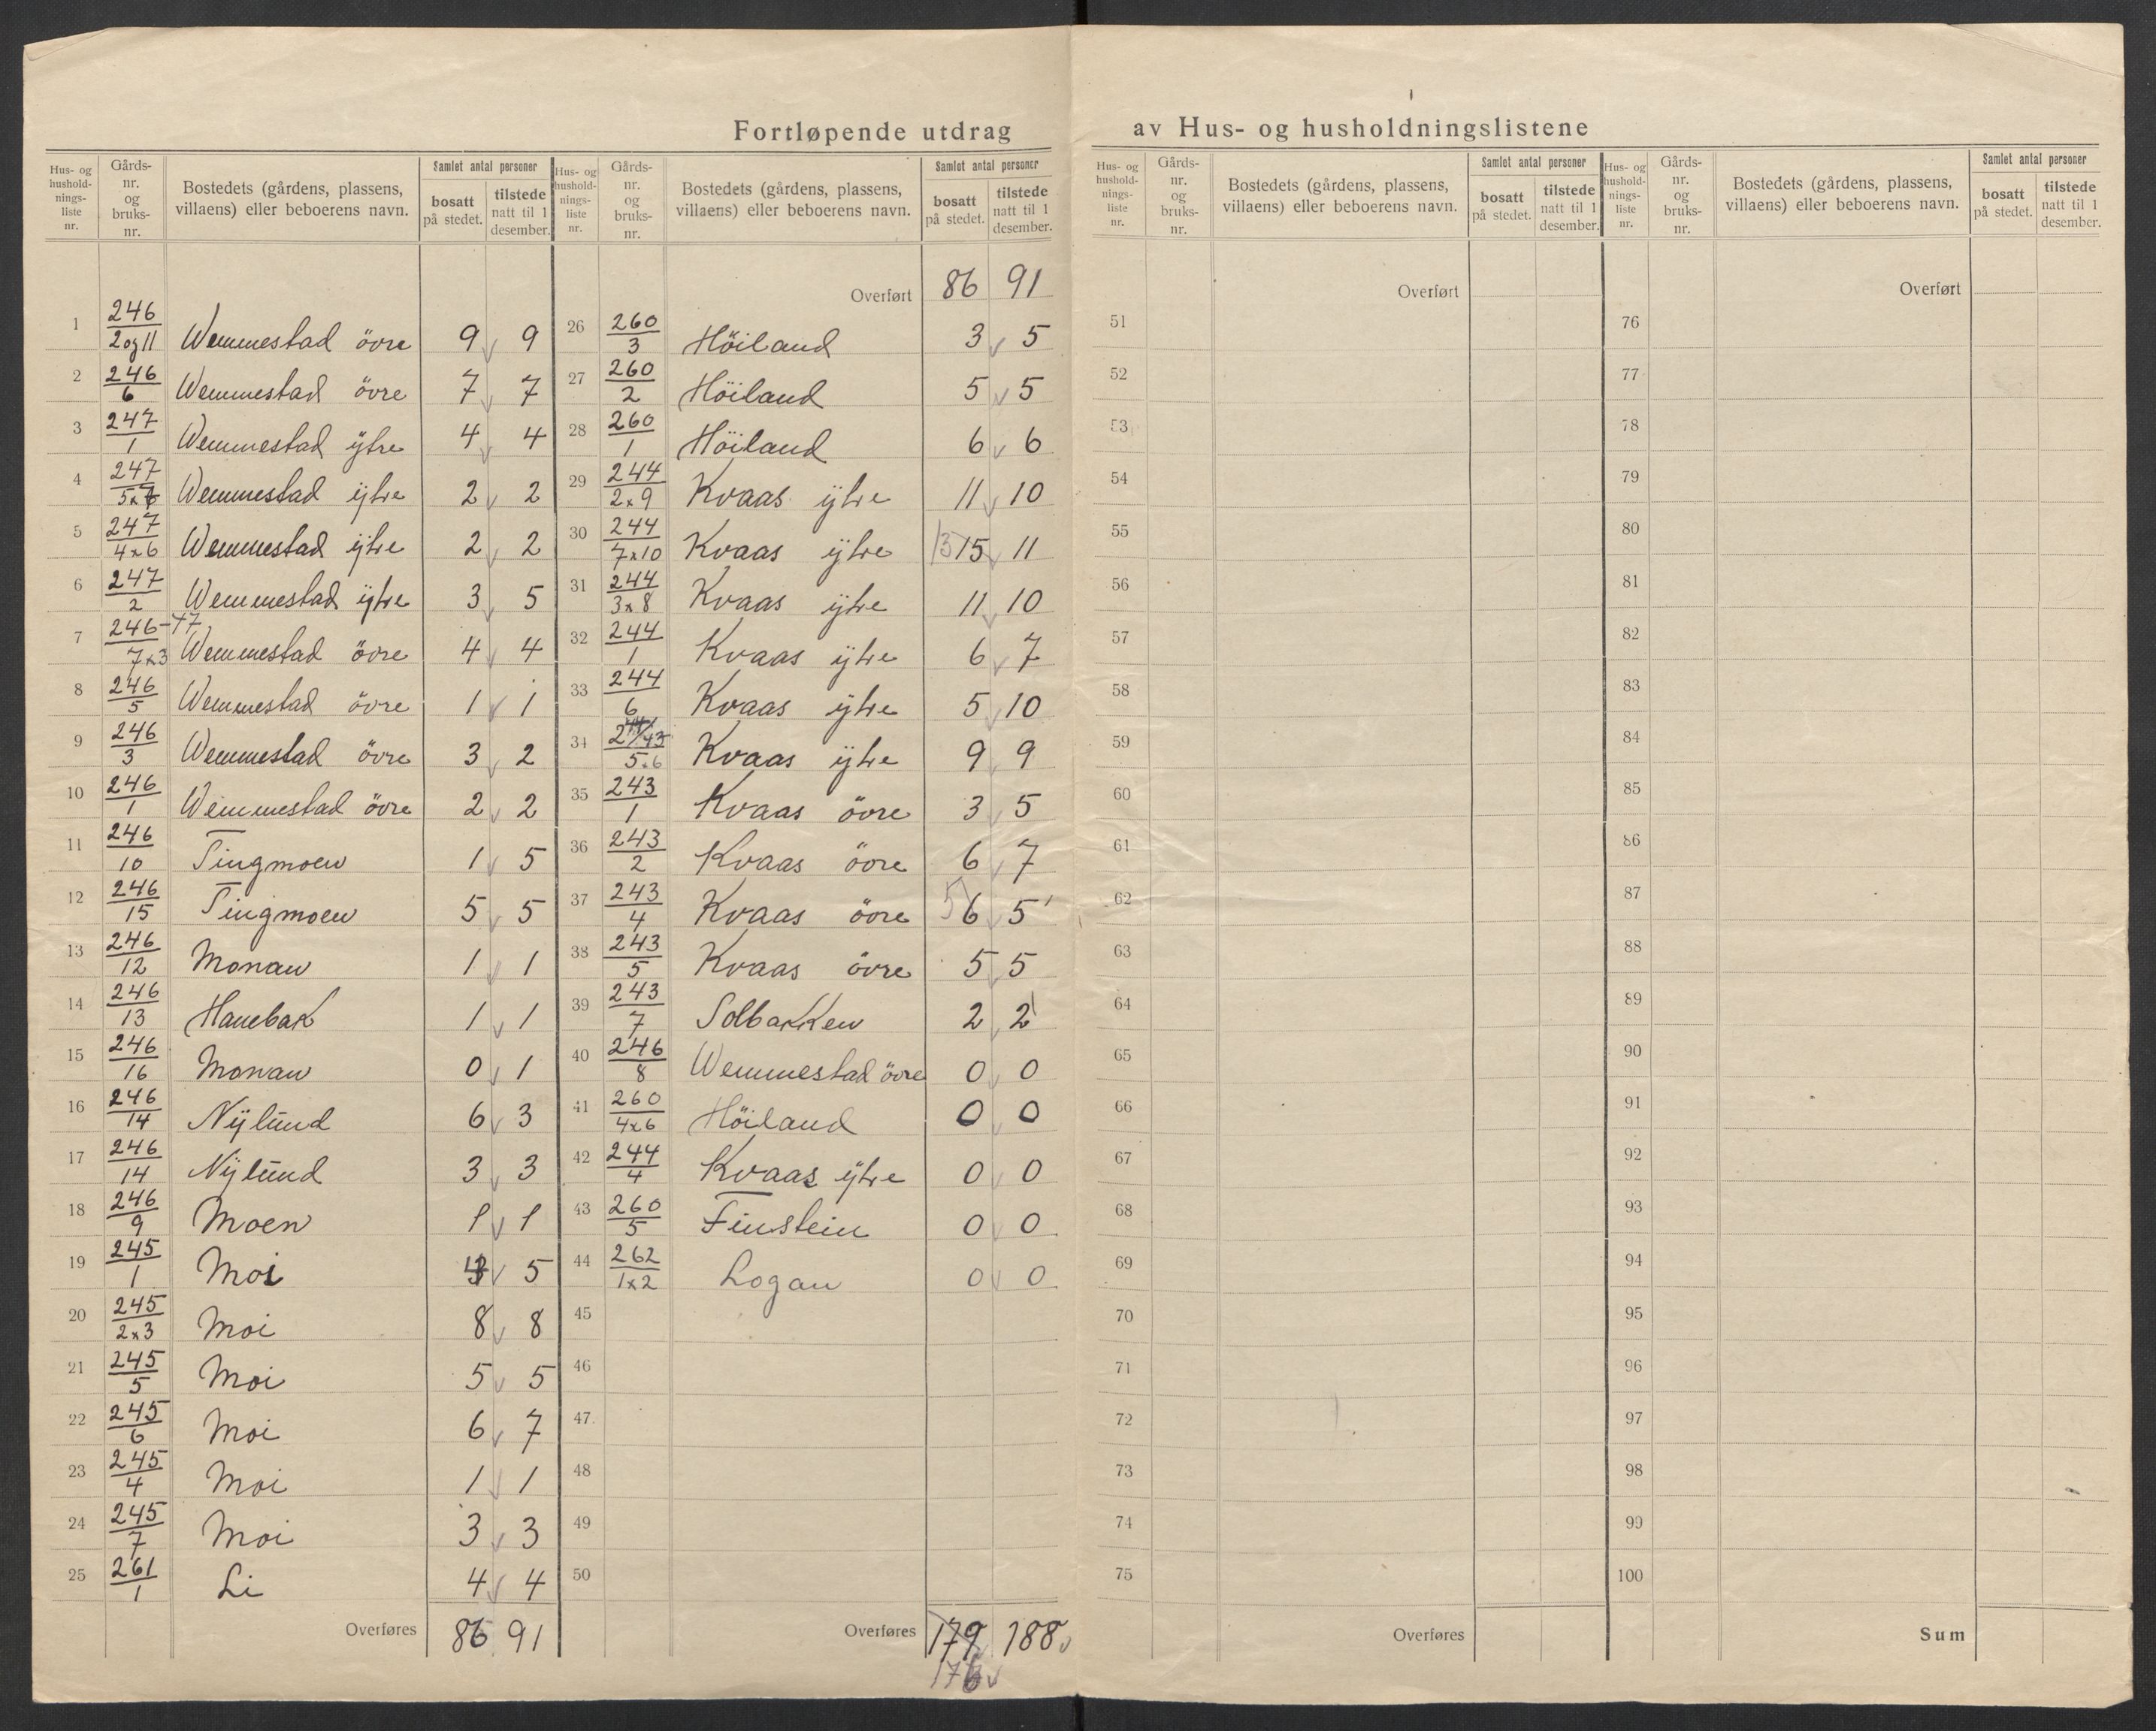 Fortløpende utdrag av Hus- og husholdningslistene
Hus- og husholdnings- liste nr. | Gårds- nr. og bruks- nr. | Bostedets (gårdens, plassens, villaens) eller beboerens navn. | Samlet antal personer | bosatt på stedet. | tilstede natt til 1 desember.
1 246/2 og 11 Wemmestad övre 9 9
2 246/6 Wemmestad övre 7 7
3 247/1 Wemmestad ÿtre 4 4
4 247/5x7 Wemmestad ÿtre 2 2
5 247/4x6 Wemmestad ÿtre 2 2
6 247/2 Wemmestad ÿtre 3 5
7 246-47/7x3 Wemmestad övre 4 4
8 246/5 Wemmestad övre 1 1
9 246/3 Wemmestad övre 3 2
10 246/1 Wemmestad övre 2 2
11 246/10 Tingmoen 1 5
12 246/15 Tingmoen 5 5
13 246/12 Monan 1 1
14 246/13 Hanebak 1 1
15 246/16 Monan 0 1
16 246/14 Nÿlund 6 3
17 246/14 Nÿlund 3 3
18 246/9 Moen 1 1
19 245/1 Moi 5
20 245/2x3 Moi 8 8
21 245/5 Moi 5 5
22 245/6 Moi 6 7
23 245/4 Moi 1 1
24 245/7 Moi 3 3
25 261/1 Li 4 4
Overføres 86 91
Hus- og husholdnings- liste nr. | Gårds- nr. og bruks- nr. | Bostedets (gårdens, plassens, villaens) eller beboerens navn. | Samlet antal personer | bosatt på stedet. | tilstede natt til 1 desember.
Overført 86 91
26 260/3 Höiland 3 5
27 260/2 Höiland 5 5
28 260/1 Höiland 6 6
29 244/2x9 Kvaas ÿtre 11 10
30 244/7x10 Kvaas ÿtre 13 15 11
31 244/3x8 Kvaas ÿtre 11 10
32 244/1 Kvaas ÿtre 6 7
33 244/6 Kvaas ÿtre 5 10
34 244/43/5x6 Kvaas ÿtre 9 9
35 243/1 Kvaas övre 3 5
36 243/2 Kvaas övre 6 7
37 243/4 Kvaas övre 5 6 5
38 243/5 Kvaas övre 5 5
39 243/7 Solbakken 2 2
40 246/8 Wemmestad övre 0 0
41 260/4x6 Höiland 0 0
42 244/4 Kvaas ÿtre 0 0
43 260/5 Finstein 0 0
44 262/1x2 Logan 0 0
45
46
47
48
49
50
Overføres 179 188
176
Hus- og husholdnings- liste nr. | Gårds- nr. og bruks- nr. | Bostedets (gårdens, plassens, villaens) eller beboerens navn. | Samlet antal personer | bosatt på stedet. | tilstede natt til 1 desember.
Overført
51
52
53
54
55
56
57
58
59
60
61
62
63
64
65
66
67
68
69
70
71
72
73
74
75
Overføres
Hus- og husholdnings- liste nr. | Gårds- nr. og bruks- nr. | Bostedets (gårdens, plassens, villaens) eller beboerens navn. | Samlet antal personer | bosatt på stedet. | tilstede natt til 1 desember.
Overført
76
77
78
79
80
81
82
83
84
85
86
87
88
89
90
91
92
93
94
95
96
97
98
99
100
Sum